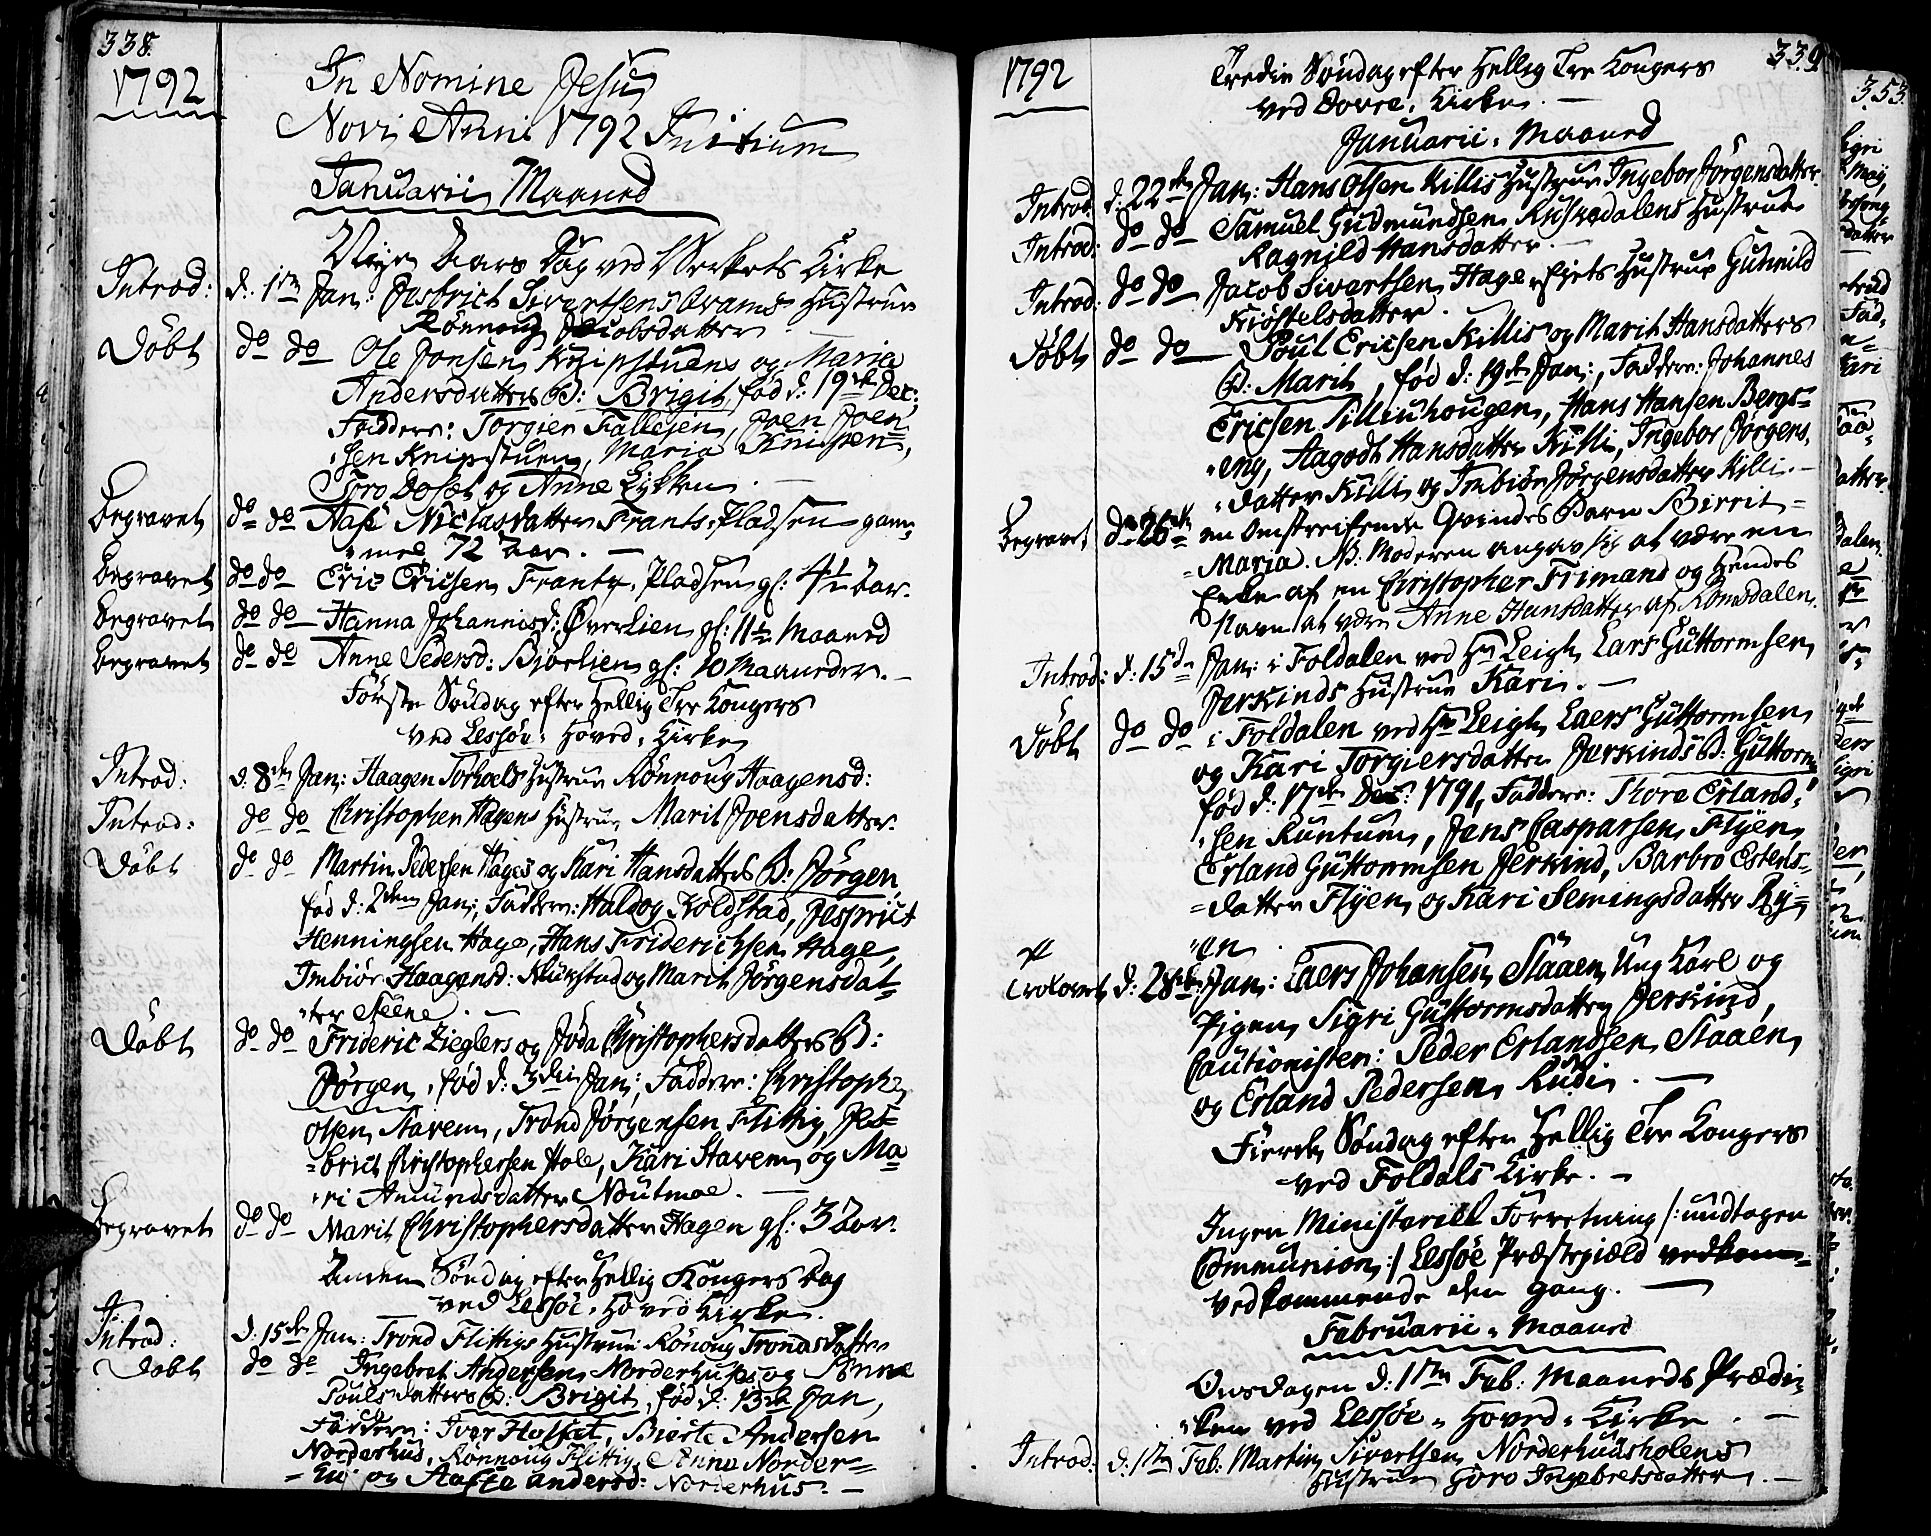 338.
1792
In Nomine Jesu
Novi Anni 1792 Initium
Januarii Maaned
Nye Aars Dag ved Werkets Kirke
Introd: d: 1ste Jan: Jesbrict Sivertsens Hustrue
Rønnoug Jacobsdatter
Døbt do do Ole Jonsen Knipstuens og Maria
Andersdatters B: Brigit, fød d: 19de Dec:,
Faddere: Torgier Fallesen, Joen Joen-
sen Knipstuen, Maria Knipen,
Goro Doset og Anne Lykken.
Begravet do do Niclasdatter Frants-Pladsen gam-
mel 72 Aar. —
Begravet do do Eric Ericsen Frantz-Pladsen gl: 4½ Aar.
Begravet do do Hanna Johannisd: Øverlien gl: 11½ Maaned
Begravet do do Anne Pedersd: Bjørlien gl: 10 Maaneder. —
Første Søndag efter Hellig Tre Konger
ved Lessøe-Hoved-Kirke
Introd: d: 8de Jan: Haagen Hustrue Rønnoug Haagensd:
Introd: do do Christopher Hagens Hustrue Marit Joensdatter.
Døbt do do Martin Pedersen Hages og Kari Hansdatters B: Jørgen,
fød d: 2den Jan:, Faddere: Haldog Koldstad, Jesprict
Henningsen Hage, Hans Friderichsen Hage,
Imbiør Haagensd: og Marit Jørgensdat-
ter Steene. —
Døbt do do Frideric Zieglers og Christophersdatters B:
Jørgen, fød d: 3die Jan:, Faddere: Christoph:
Olsen Staven, Trond Jørgensen Flittig, Jes-
brict Christophersen Hole, Kari Staven og Ma-
ri Amundsdatter Noutmoe. —
Begravet do do Marit Christophersdatter Hagen gl: 3 Aar.
Anden Søndag efter Hellig Kongers Dag
ved Lessøe-Hoved Kirke.
Introd: d: 15de Jan: Trond Flittigs Hustrue Rønoug Tronds Datter
Døbt do do Ingebret Andersen Norderhuses og Anne
Pouls datters B: Brigit, fød d: 13de Jan,
Faddere: Iver Holset, Biørte Andersen
Norderhus, Rønnoug Flittig, Anne Norder-
hus og Andersd: Norderhus. —
339
1792
Tredie Søndag efter Hellig Tre Kongers
ved Dovre-Kirke. —
Januarii-Maaned
Introd: d: 22de Jan: Hans Olsen Killis Hustrue Ingebor Jørgensdatter.
Introd: do do Samuel Gudmundsen Hustrue
Ragnild Hansdatter. —
Introd: do do Jacob Sivertsen Hustrue Gunnild
Kiøstelsdatter.
Døbt do do Poul Ericsen Killis og Marit Hansdatters
B: Marit, fød d: 19de Jan:, Faddere: Johannes
Ericsen Tilliuhougen, Hans Hansen Bergs-
eng, Aagodt Hansdatter Killi, Ingebor Jørgens-
datter Killi og Imbiør Jørgensdatter Killi. —
Begravet d: 26de en omstreifende Qvindes Barn Birrit-
Maria. NB. Moderen angav sig at være en
Enke af en Christopher Frimand og Hendes
Navn at være Anne Hansdatter af Romsdalen.
Introd: d: 15de Jan: i Foldalen ved Hr Leigh Lars Guttormsen
Jerkinds Hustrue Kari. —
Døbt do do i Foldalen ved Hr Leigh Laers Guttormsen
og Kari Torgiersdatter Jerkinds B: Guttorm
fød d: 17de Dec: 1791, Faddere: Thore Erland-
sen Runtum, Jens Casparsen Flyen,
Erland Guttormsen Jerkind, Barbro Estens-
datter Flyen og Kari Semingsdatter Ry-
en.
Trolovet d: 28de Jan: Laers Johansen Staaen Ung Karl og
Pigen Sigri Guttormsdatter Jerkind,
Cautionister: Peder Erlandsen Staaen,
og Erland Pedersen Rudi. —
Fierde Søndag efter Hellig Tre Kongers
ved Foldals Kirke. —
Ingen Ministeriel Forretning /: undtagen
Communion :/ Lessøe Præstegiæld
vedkommende den Gang. —
Februarii-Maaned
Onsdagen d: 1ste Feb: Maaneds Prædi-
ken ved Lessøe-Hoved-Kirke. —
Introd: d: 1ste Feb: Martin Sivertsen Norderhuusholens
Hustrue Goro Ingebretsdatter. —
353